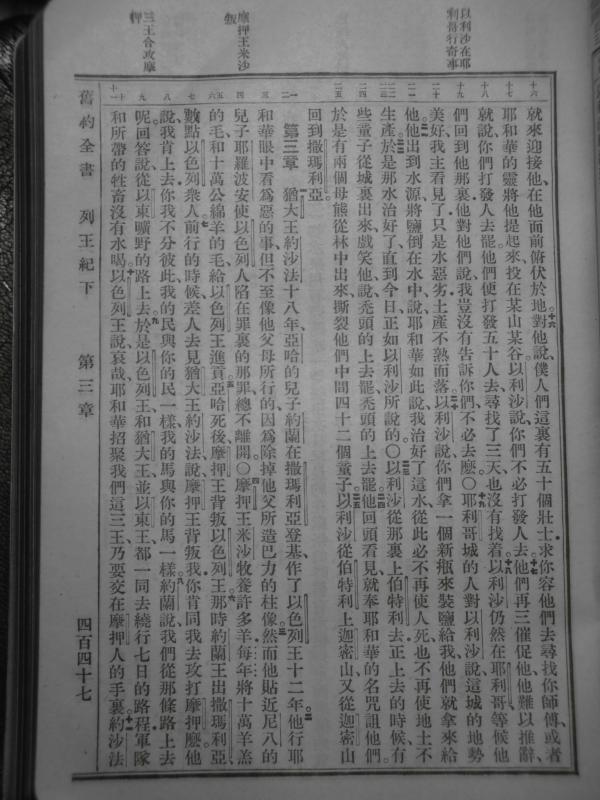 以利沙在耶利哥行奇事
摩押王米沙叛
三王合攻摩押
十六
就來迎接他、在他面前俯伏於地、對他說、僕人們這裏有五十個壯士、求你容他們去尋找你師傅、或者
十七
耶和華的靈將他提起來、投在某山某谷、以利沙說、你們不必打發人去。他們再三催促他、他難以推辭、
十八
就說、你們打發人去罷、他們便打發五十人去、尋找了三天、也沒有找着。以利沙仍然在耶利哥等候他
十九
們回到他那裏、他對他們說、我豈沒有告訴你們不必去麼。〇耶利哥城的人對以利沙說、這城的地勢
二十
美好、我主看見了、只是水惡劣、土產不熟而落。以利沙說、你們拿一個新瓶來裝鹽給我、他們就拿來給
二一
他。他出到水源、將鹽倒在水中、說、耶和華如此說、我治好了這水、從此必不再使人死、也不再使地土不
二二
生產。於是那水治好了、直到今日、正如以利沙所說的。〇以利沙從那裏上伯特利去、正上去的時候、有
二四
些童子從城裏出來、戲笑他說、禿頭的上去罷、禿頭的上去罷。他回頭看見、就奉耶和華的名咒詛他們。
二五
於是有兩個母熊從林中出來、撕裂他們中間四十二個童子。以利沙從伯特利上迦密山、又從迦密山
回到撒瑪利亞。
第三章 猶大王約沙法十八年、亞哈的兒子約蘭在撒瑪利亞登基、作了以色列王十二年。他行耶
和華眼中看爲惡的事、但不至像他父母所行的、因爲除掉他父所造巴力的柱像。然而他貼近尼八的
兒子耶羅波安使以色列人陷在罪裏的那罪、總不離開。〇摩押王米沙牧養許多羊、每年將十萬羊羔
的毛、和十萬公綿羊的毛、給以色列王進貢。亞哈死後、摩押王背叛以色列王。那時約蘭王出撒瑪利亞、
數點以色列衆人。前行的時候、差人去見猶大王約沙法、說、摩押王背叛我、你肯同我去攻打摩押麼、他
說、我肯上去、你我不分彼此、我的民與你的民一樣、我的馬與你的馬一樣。約蘭說、我們從那條路上去
呢、回答說、從以東曠野的路上去。於是以色列王、和猶大王、並以東王、都一同去繞行七日的路程、軍隊
和所帶的牲畜沒有水喝。以色列王說、哀哉、耶和華招聚我們這三王、乃要交在摩押人的手裏。約沙法
舊約全書 列王紀下 第三章 四百四十七